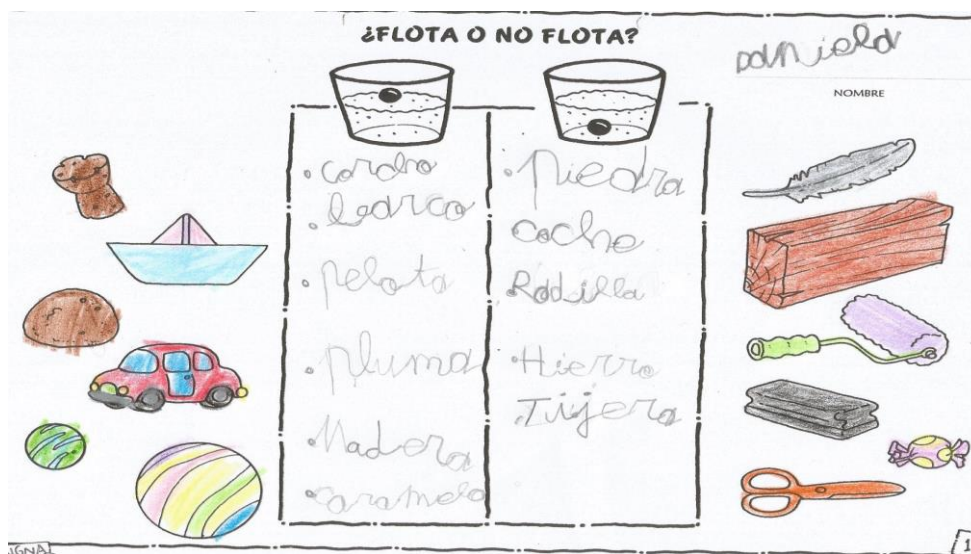 ¿FLOTA O NO FLOTA?
Daniela
NOMBRE
• corcho
• barco
• pelota
• pluma
• Madera
• caramelo
• Piedra
coche
• Rodillo
• Hierro
• Tijera
IGNAL
1